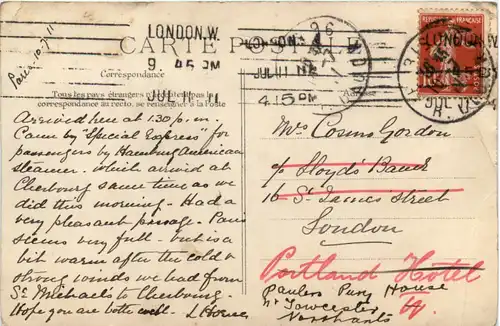 LONDON.W.
9. 45 PM
JUL 11 11
LONDON.W
4.15 PM
JUL 11
26
CARTE POSTALE
RÉPUBLIQUE FRANÇAISE
Paris 10.7.11
Correspondance
Tous les pays étrangers n'acceptent pas la
correspondance au recto, se renseigner à la Poste
Adresse
Arrived here at 1.30 p.m.
Came by "Special Express" for
passengers by Hamburg American
steamer. which arrived at
Cherbourg same time as we
did this morning - Had a
very pleasant passage. Paris
seems very full - but is a
bit warm after the cold &
strong winds we had from
St Michaels to Cherbourg -
Hope you are both well -
Mrs Cosmo Gordon
c/o Lloyds Bank
16 St James Street
London
Portland Hotel
Paulers Pury House
Nr Towcester
Northants